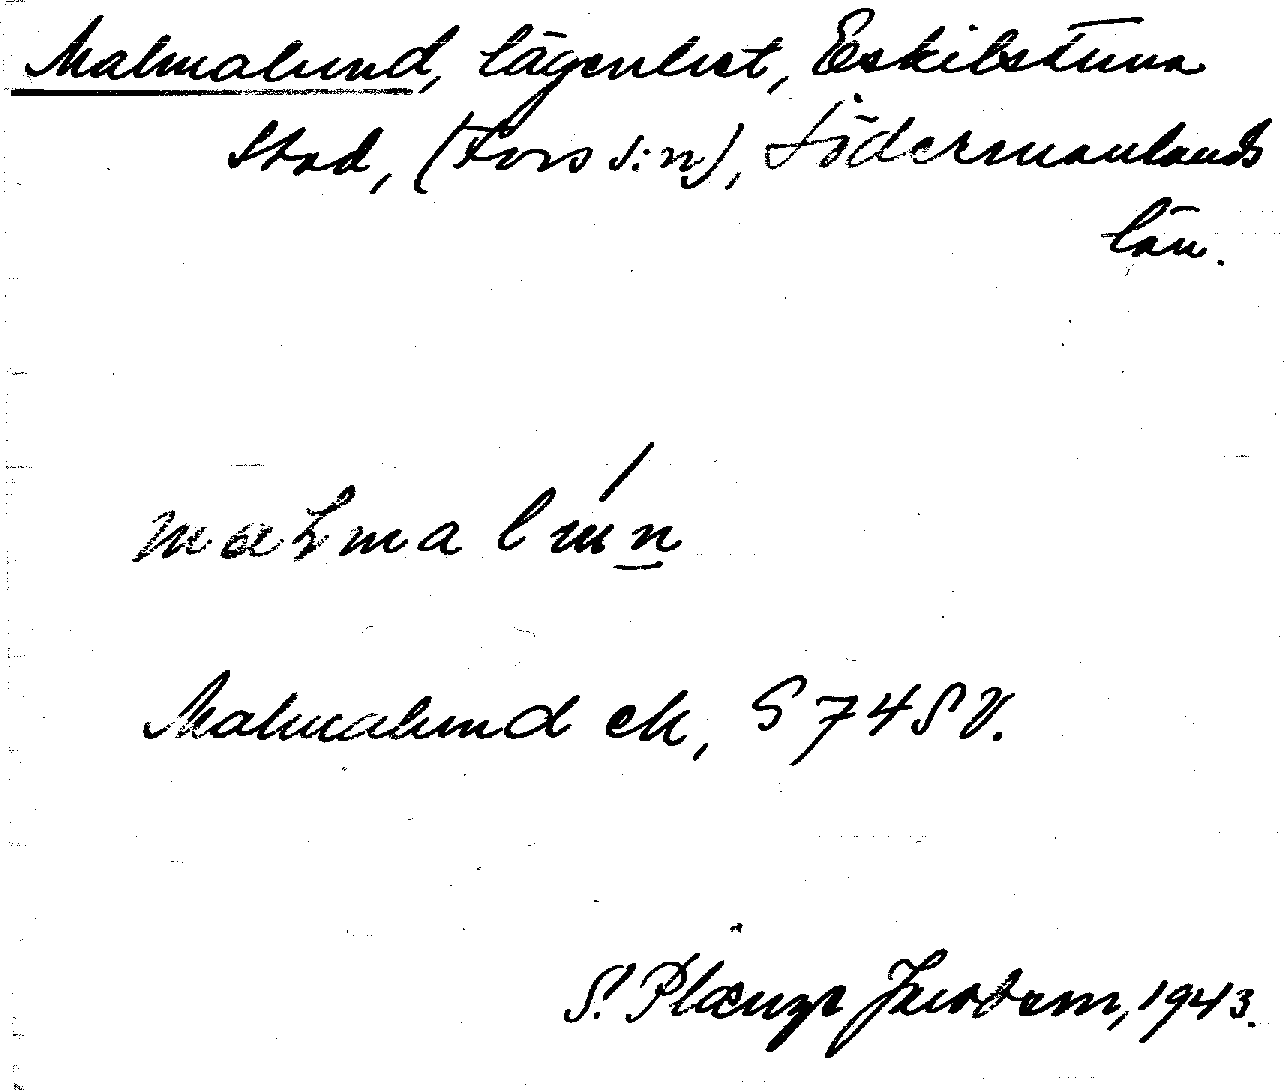 Malmalund, lägenhet, Eskilstuna
stad, (Fors s:n), Södermanlands
län.
malmalún
Malmalund ek, S 74 SV.
S. Plænge Jacobson, 1943.